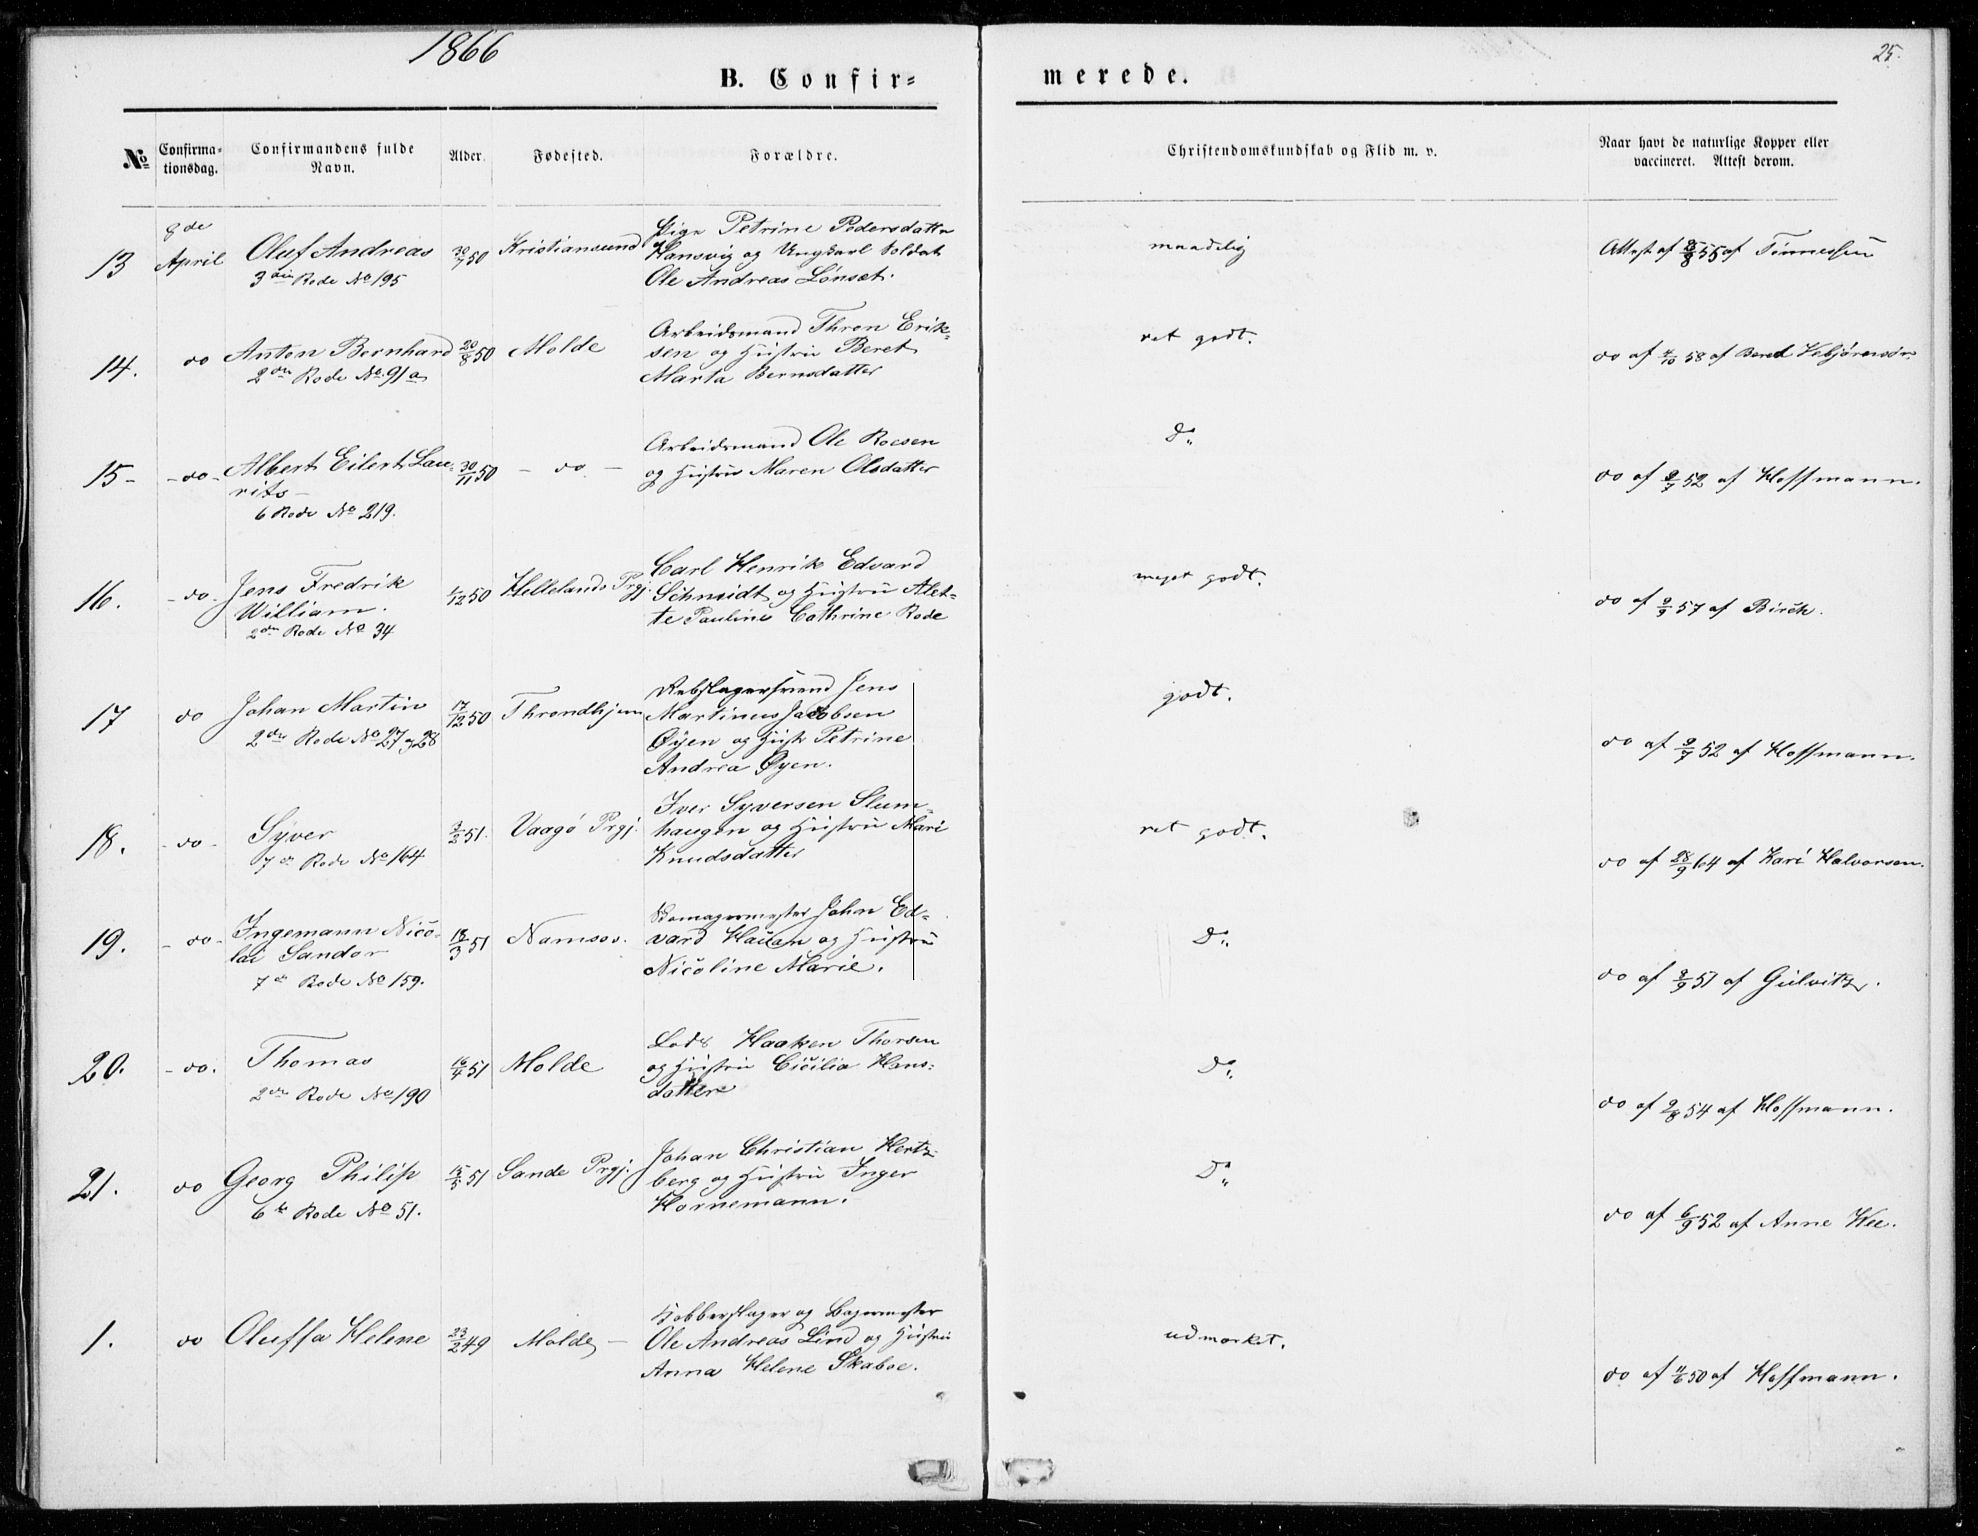 1866
25.
B. Confir=
merede.
No
Confirma-
tionsdag.
Confirmandens fulde
Navn.
Alder.
Fødested.
Forældre.
Christendomskundskab og Flid m. v.
Naar havt de naturlige Kopper eller
vaccineret. Attest derom.
13
8de
April
Oluf Andreas
3die Rode No 195
30/7 50
Kristiansund
Pige Petrine Pedersdatter
Hansvig og Ungkarl Soldat
Ole Andreas Lønset.
maadelig
Attest af 8/8 55 af Tønnessen
14.
do
Anton Bernhard
2den Rode No. 91a
20/8 50
Molde
Arbeidsmand Thron Erik-
sen og Hustru Beret
Marta Berns​datter
ret godt.
do af 4/10 58 af Beret Vebjørensdr
15-
-do-
Albert Eilert Lau-
rits-
6 Rode No 219.
30/11 50
- do -
Arbeidsmand Ole Roesen
og Hustru Maren Olsdatter
Do.
do af 9/7 52 af Hoffmann.
16.
-do.
Jens Fredrik
William.
2den Rode No 34
1/12 50
Hellelands Prgj.
Carl Henrik Edvard
Schmidt og Hustru Alet-
te Pauline Cathrine Rode
meget godt.
do af 9/9 57 af Birch.
17
do
Johan Martin
2den Rode No 27 og 28
17/12 50
Throndhjem
Rebslagersvend Jens
Martinus Jacobsen
Øyen og Hustr Petrine
Andrea Øyen.
godt.
do af 9/7 52 af Hoffmann.
18.
-do-
Syver
7de Rode No 164
3/2 51.
Vaagø Prgj.
Iver Syversen Slum-
haugen og Hustru Mari
Knudsdatter
ret godt.
do af 28/9 64 af Kari Halvorsen.
19.
-do-
Ingemann Nico-
lai Sandor
7de Rode No 159.
18/3 51
Namsos.
Skomagermester John Ed-
vard Hauan og Hustru
Nicoline Marie.
Do.
do af 8/9 51 af Gulvitz.
20.
-do.
Thomas
2den Rode No 190
16/4 51
Molde
Lods Haaken Thorsen
og Hustru Cicilia Hans-
datter
Do.
do af 2/8 54 af Hoffmann.
21.
do
Georg Philip
6te Rode No 51.
15/5 51
Sande Prgj.
Johan Christian Hertz-
berg og Hustru Inger
Hornemann.
Do.
do af 6/9 52 af Anne Kee.
1.
do
Oluffa Helene
23/2 49
Molde -
Kobberslager og Bagermester
Ole Andreas Lind og Hustru
Anna Helene Skaboe.
udmærket.
do af 11/6 50 af Hoffmann.